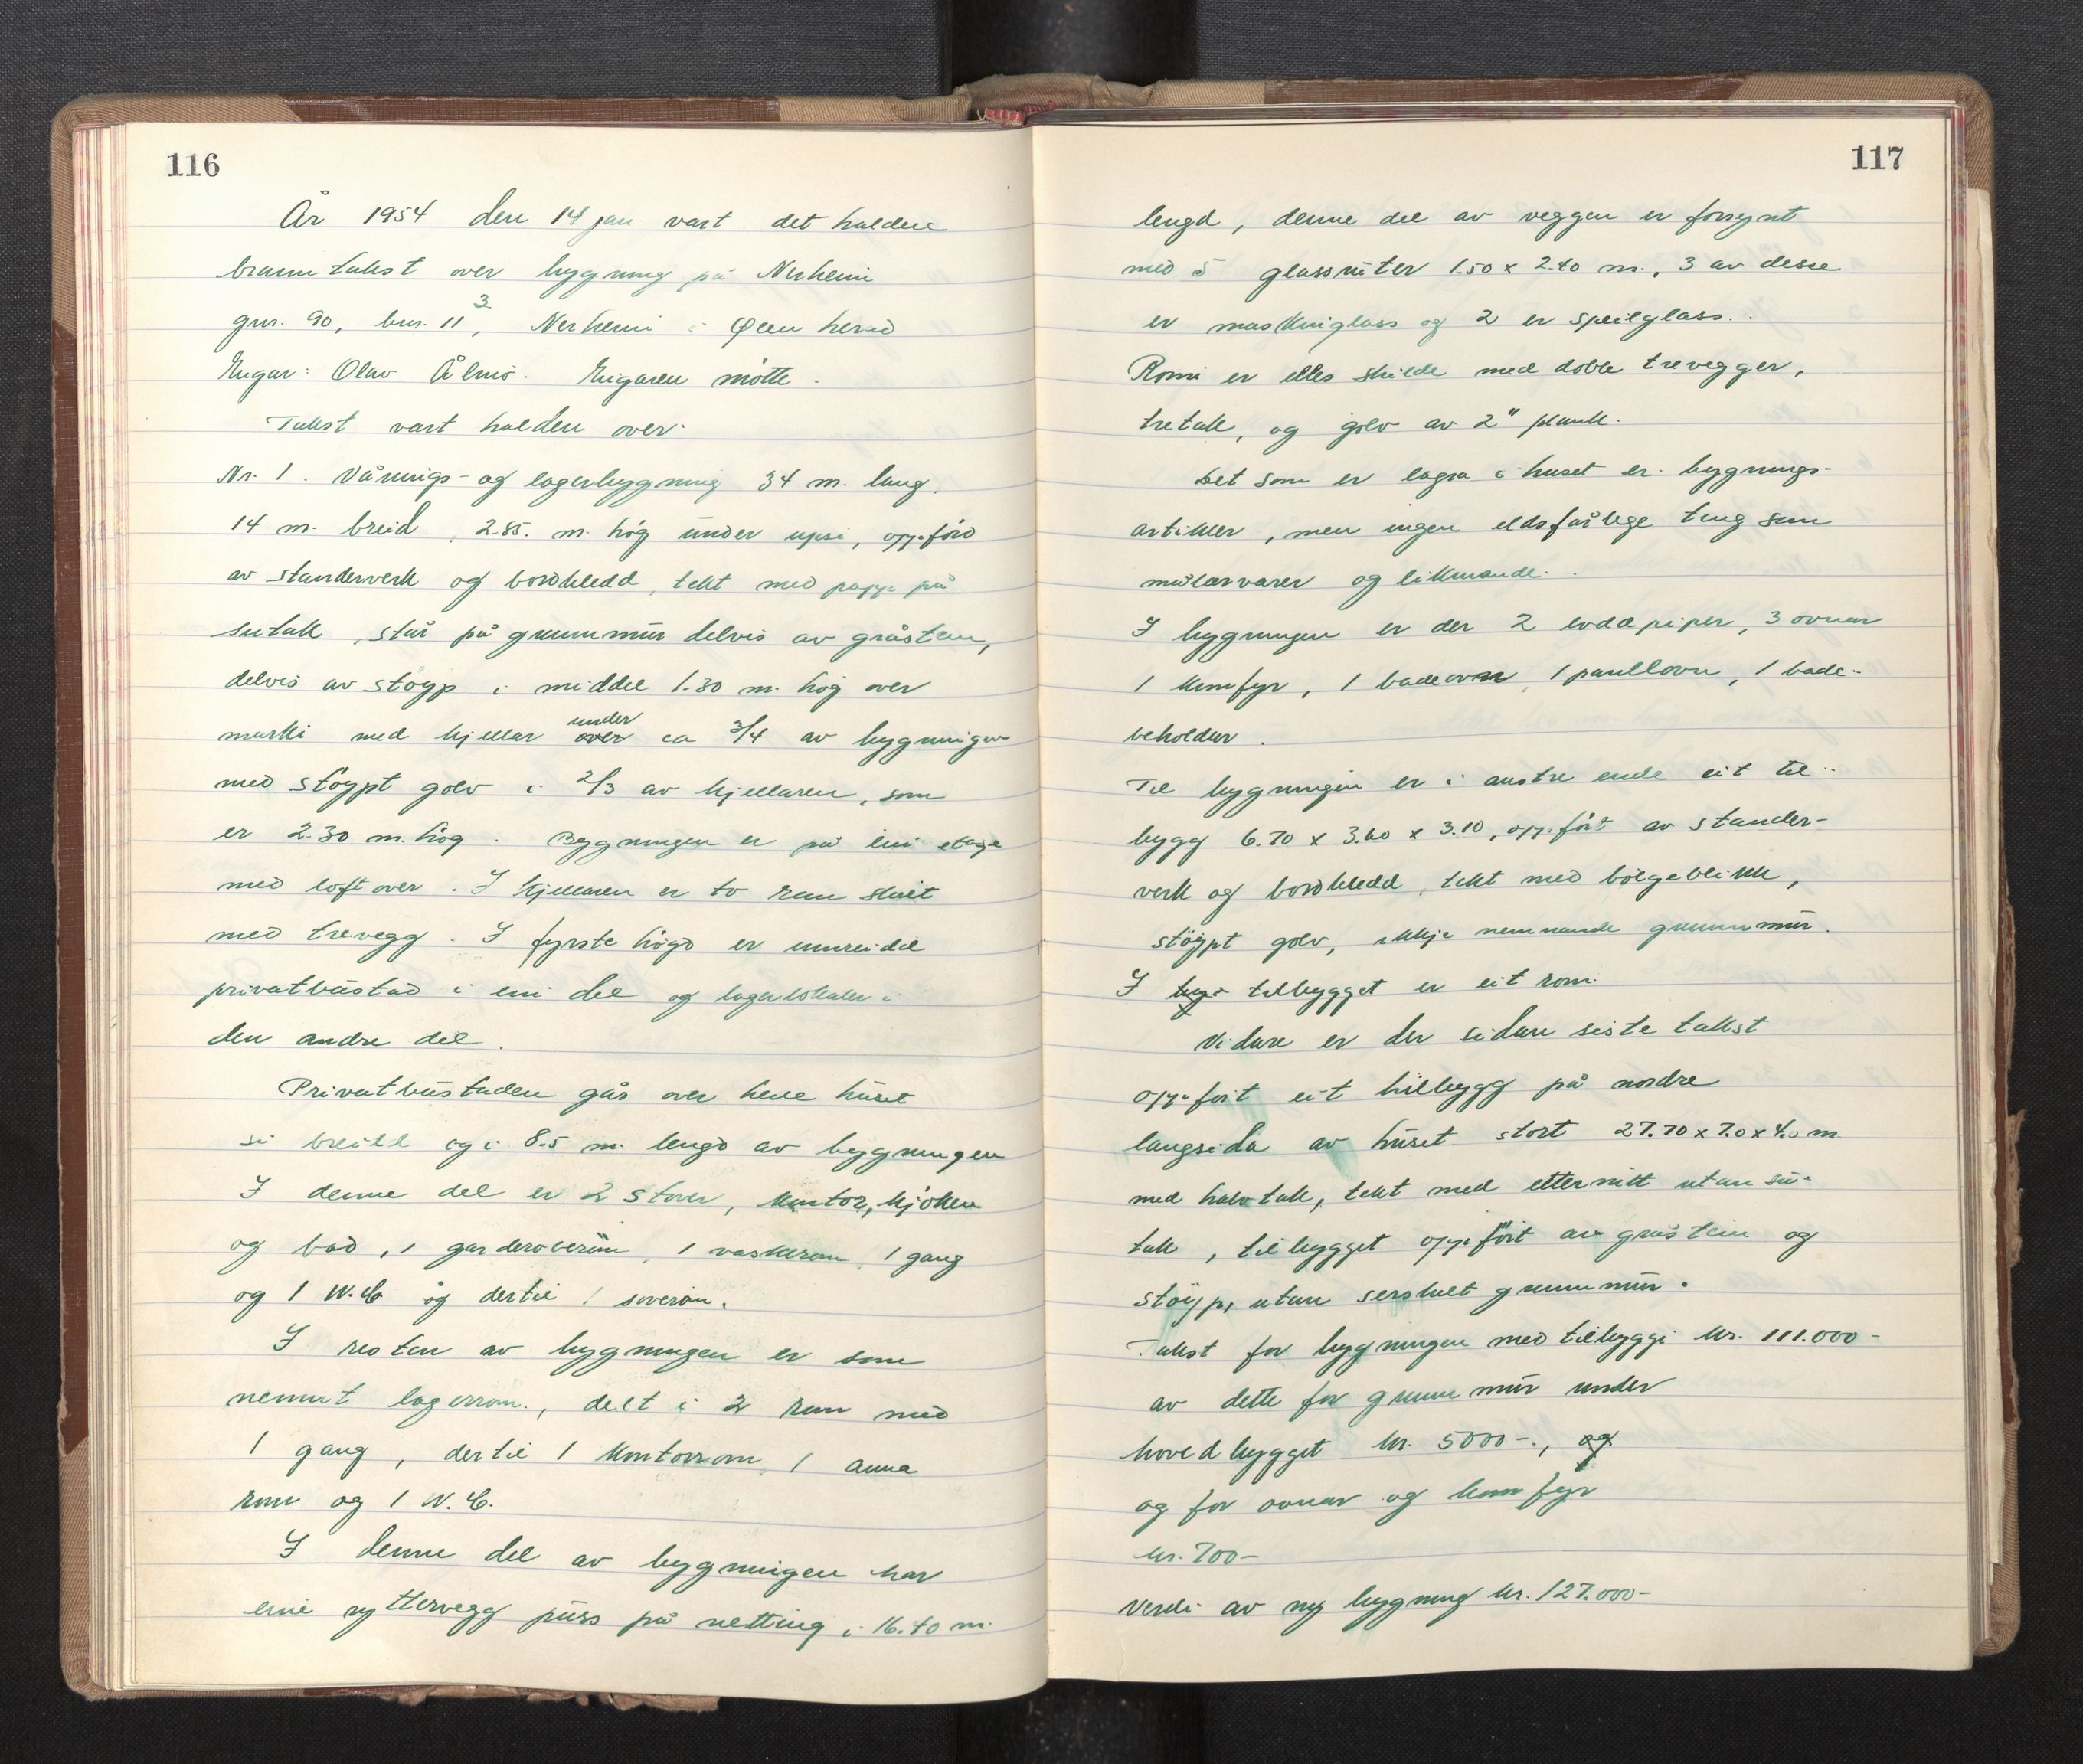 116
År 1954 den 14 jan vart det halden
branntakst over bygning på Nerheim
gnr. 90, bnr. 11³, Nerheim i Ølen herad
Eigar: Olav Ålmo. Eigaren møtte.
Takst vart halden over:
Nr. 1. Vånings- og lagerbygning 34 m. lang,
14 m. breid, 2.85. m. høg under upsi, oppførd
av standerverk og bordkledd, tekt med papp på
sutak, står på grunnmur delvis av gråstein,
delvis av støyp i middel 1.30 m. høg over
marki med kjellar over under ca 3/4 av bygningen
med støypt golv i 2/3 av kjellaren, som
er 2.30 m. høg. Bygningen er på ein etage
med loft over. I kjellaren er to rom skilt
med trevegg. I fyrste høgd er innreidd
privatbustad i ein del og lagerlokaler i
den andre del.
Privatbustaden går over hele huset
si breidd og i 8.5 m. lengd av bygningen
I denne del er 2 stover, kontor, kjøken
og bad, 1 garderoberom, 1 vaskerom, 1 gang
og 1 W.C og dertil 1 soverom.
I resten av bygningen er som
nemnt lagerrom., delt i 2 rom med
1 gang, dertil 1 kontorrom, 1 anna
rom og 1 W.C.
I denne del av bygningen har
eine yttervegg puss på netting i 16.40 m.
117
lengd, denne del av veggen er forsynt
med 5 glassruter 1.50 x 2.40 m., 3 av desse
er maskinglass og 2 er speilglass.
Romi er elles skilde med doble trevegger,
tretak, og golv av 2" plank.
Det som er lagra i huset er bygnings-
artikler, men ingen eldsfårlege ting som
malarvarer og liknande.
I bygningen er der 2 - piper, 3 ovnar
1 komfyr, 1 badeovn, 1 parellovn, 1 bade-
beholdar.
Til bygningen er i austre ende eit til-
bygg 6.70 x 3.60 x 3.10, oppført av stander-
verk og bordkledd, tekt med bølgeblikk,
støypt golv, ikkje nemnande grunnmur.
I byg tilbygget er eit rom.
Vidare er der sidan siste takst
oppført eit tilbygg på nordre
langsida av huset stort 27.70 x 7.0 x 4.0 m
med halvtak, tekt med etternitt utan su-
tak, tilbygget oppført av gråstein og
støyp, utan serskilt grunnmur.
Takst for bygningen med tilbyggi kr. 111.000-
av dette for grunnmur under
hovedbygget kr. 5000-., og
og for ovnar og komfyr
kr. 700-
Verdi av ny bygning kr. 127.000-